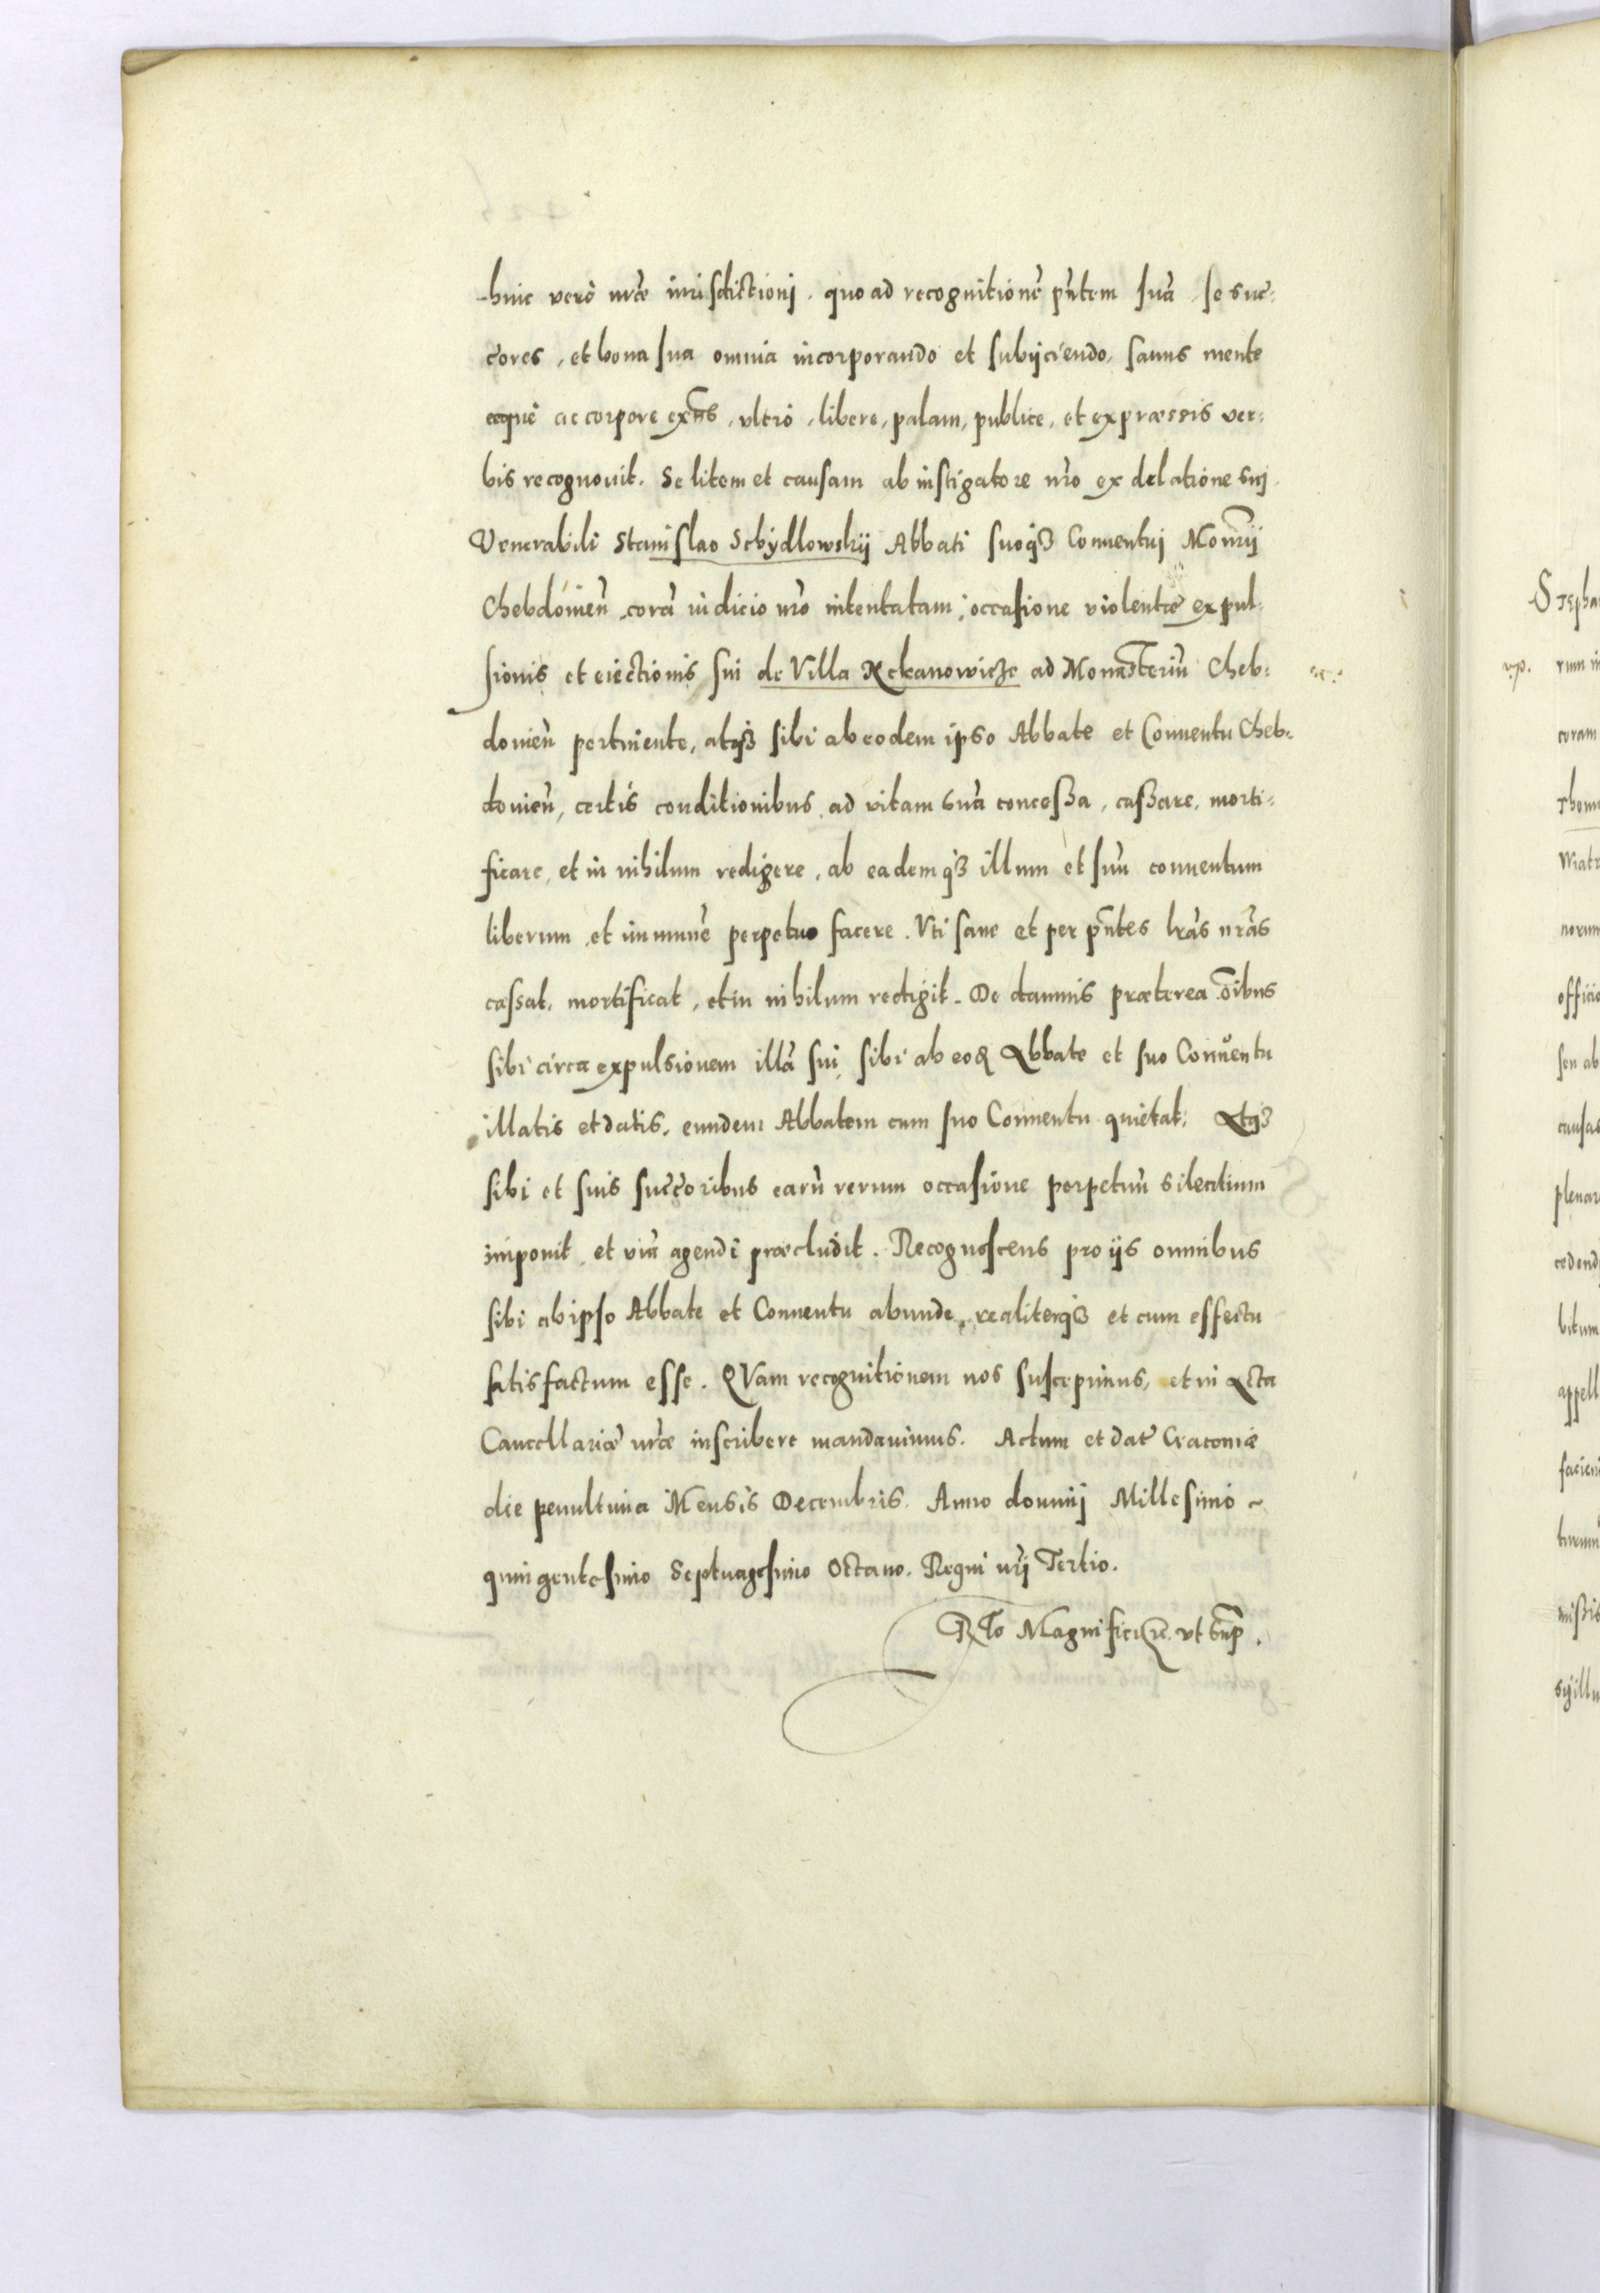 huic verò nr̃ae iurisdictionj. quo ad recognitionẽ pñtem suã se suc=
c̃ores, et bona sua omnia incorporando et subijciendo, sanus mente
aequè ac corpore exñs, vltrò, libere, palam, publice, et expraessis ver=
bis recognouit. Se litem et causam ab instigatore nr̃o ex delatione suj
Venerabili Stanislao Schydlowskij Abbati suoqȝ Conuentuj Monrĩj
Chebdouieñ corã iudicio nr̃o intentatam, occasione violentae expul=
sionis et eiectionis sui de Villa Rekanowicze ad Monasteriũ Cheb=
douieñ pertinente, atqȝ sibi ab eodem ipso Abbate et Conuentu Cheb=
douieñ, certis conditionibus ad vitam suã concessa, cassare, morti=
ficare, et in nihilum redigere, ab eademqȝ illum et suũ conuentum
liberum et immunẽ perpetuo facere. Vti sane et per pñtes lrãs nrãs
cassat, mortificat, et in nihilum redigit. De damnis praeterea oĩbus
sibi circa expulsionem illã sui, sibi ab eoḋ Abbate et suo Conuentu
illatis et datis, eundem Abbatem cum suo Conuentu quietat, Atqȝ
sibi et suis succ̃oribus earũ rerum occasione perpetuũ silentium
imponit, et viã agendi praecludit. Recognoscens pro ijs omnibus
sibi ab ipso Abbate et Conuentu abunde, realiterqȝ et cum effectu
satisfactum esse. QVam recognitionem nos suscepimus, et in Acta
Cancellariae nr̃ae inscribere mandauimus. Actum et dat̃ Cracouiae
die penultima Mensis Decembris. Anno dominj Millesimo ~
quingentesimo Septuagesimo Octauo. Regni nr̃j Tertio.
Rlo Magnifici &c. vt sup̃.